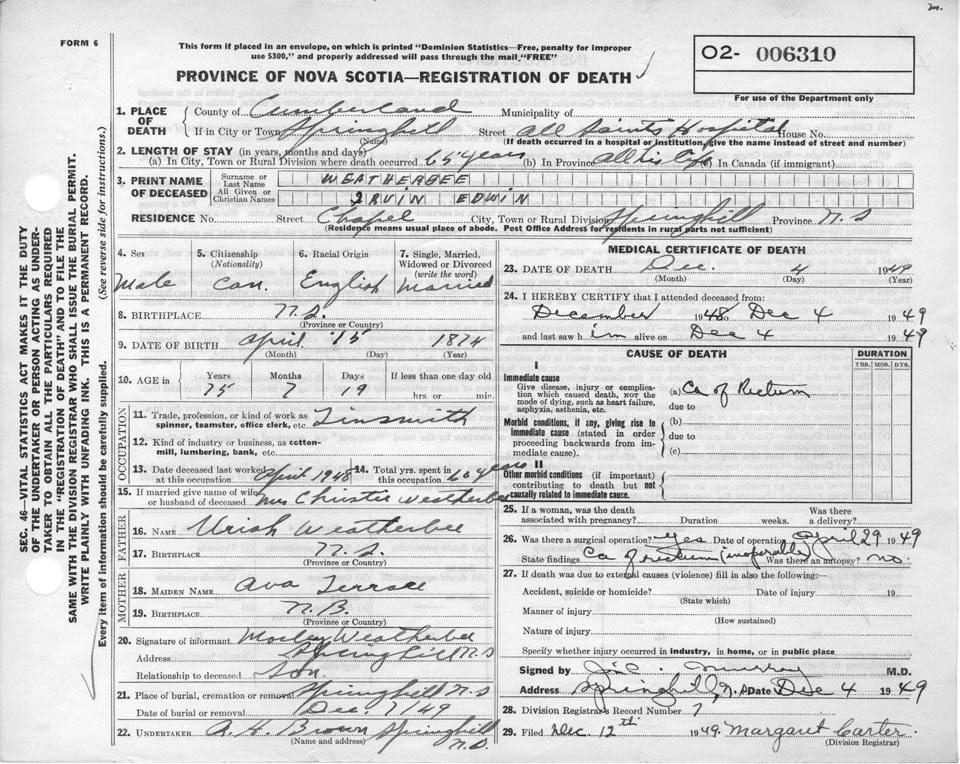 FORM 6
This form if placed in an envelope, on which is printed "Dominion Statistics—Free, penalty for improper
use $300," and properly addressed will pass through the mail, "FREE"
PROVINCE OF NOVA SCOTIA—REGISTRATION OF DEATH
O2- 006310
For use of the Department only
SEC. 46—VITAL STATISTICS ACT MAKES IT THE DUTY
OF THE UNDERTAKER OR PERSON ACTING AS UNDER-
TAKER TO OBTAIN ALL THE PARTICULARS REQUIRED
IN THE "REGISTRATION OF DEATH" AND TO FILE THE
SAME WITH THE DIVISION REGISTRAR WHO SHALL ISSUE THE BURIAL PERMIT.
WRITE PLAINLY WITH UNFADING INK. THIS IS A PERMANENT RECORD.
Every item of information should be carefully supplied. (See reverse side for instructions.)
1. PLACE OF DEATH
County of Cumberland Municipality of
If in City or Town Springhill Street All Saints Hospital House No.
(Name) (If death occurred in a hospital or institution, give the name instead of street and number)
2. LENGTH OF STAY (in years, months and days)
(a) In City, Town or Rural Division where death occurred 65 years (b) In Province all his life (c) In Canada (if immigrant)
3. PRINT NAME OF DECEASED
Surname or Last Name WEATHERBEE
All Given or Christian Names IRVIN EDWIN
RESIDENCE No. Street Chapel City, Town or Rural Division Springhill Province N.S
(Residence means usual place of abode. Post Office Address for residents in rural parts not sufficient)
4. Sex Male
5. Citizenship (Nationality) Can.
6. Racial Origin English
7. Single, Married, Widowed or Divorced (write the word) Married
8. BIRTHPLACE N.S.
(Province or Country)
9. DATE OF BIRTH April 15 1874
(Month) (Day) (Year)
10. AGE in Years 75 Months 7 Days 19 If less than one day old hrs. or min.
OCCUPATION
11. Trade, profession, or kind of work as
spinner, teamster, office clerk, etc. Tinsmith
12. Kind of industry or business, as cotton-
mill, lumbering, bank, etc.
13. Date deceased last worked at this occupation April 1948
14. Total yrs. spent in this occupation 60 years
15. If married give name of wife
or husband of deceased Mrs Christie Weatherbee
FATHER
16. NAME Uriah Weatherbee
17. BIRTHPLACE N.S.
(Province or Country)
MOTHER
18. MAIDEN NAME Ava
19. BIRTHPLACE N.B.
(Province or Country)
20. Signature of informant Weatherbee
Address Springhill N.S
Relationship to deceased Son.
21. Place of burial, cremation or removal Springhill N.S
Date of burial or removal Dec. 7/49
22. UNDERTAKER Brown Springhill N.S.
(Name and address)
MEDICAL CERTIFICATE OF DEATH
23. DATE OF DEATH Dec. 4 1949
(Month) (Day) (Year)
24. I HEREBY CERTIFY that I attended deceased from:
December 1948 to Dec 4 1949
and last saw h im alive on Dec 4 1949
CAUSE OF DEATH
DURATION
YRS. MOS. DYS.
I
Immediate cause
Give disease, injury or complica-
tion which caused death, NOT the
mode of dying, such as heart failure,
asphyxia, asthenia, etc.
(a) Ca of Rectum
due to
Morbid conditions, if any, giving rise to
immediate cause (stated in order
proceeding backwards from im-
mediate cause).
(b)
due to
(c)
II
Other morbid conditions (if important)
contributing to death but not
causally related to immediate cause.
25. If a woman, was the death
associated with pregnancy? Duration weeks. Was there a delivery?
26. Was there a surgical operation? Yes Date of operation April 29 1949
State findings Ca of rectum (inoperable) Was there an autopsy? no
27. If death was due to external causes (violence) fill in also the following:—
Accident, suicide or homicide? Date of injury 19
(State which)
Manner of injury
(How sustained)
Nature of injury
Specify whether injury occurred in industry, in home, or in public place
Signed by Murray M.D.
Address Springhill, N.S. Date Dec 4 1949
28. Division Registrar's Record Number 7
29. Filed Dec. 12th 1949. Margaret Carter.
(Division Registrar)